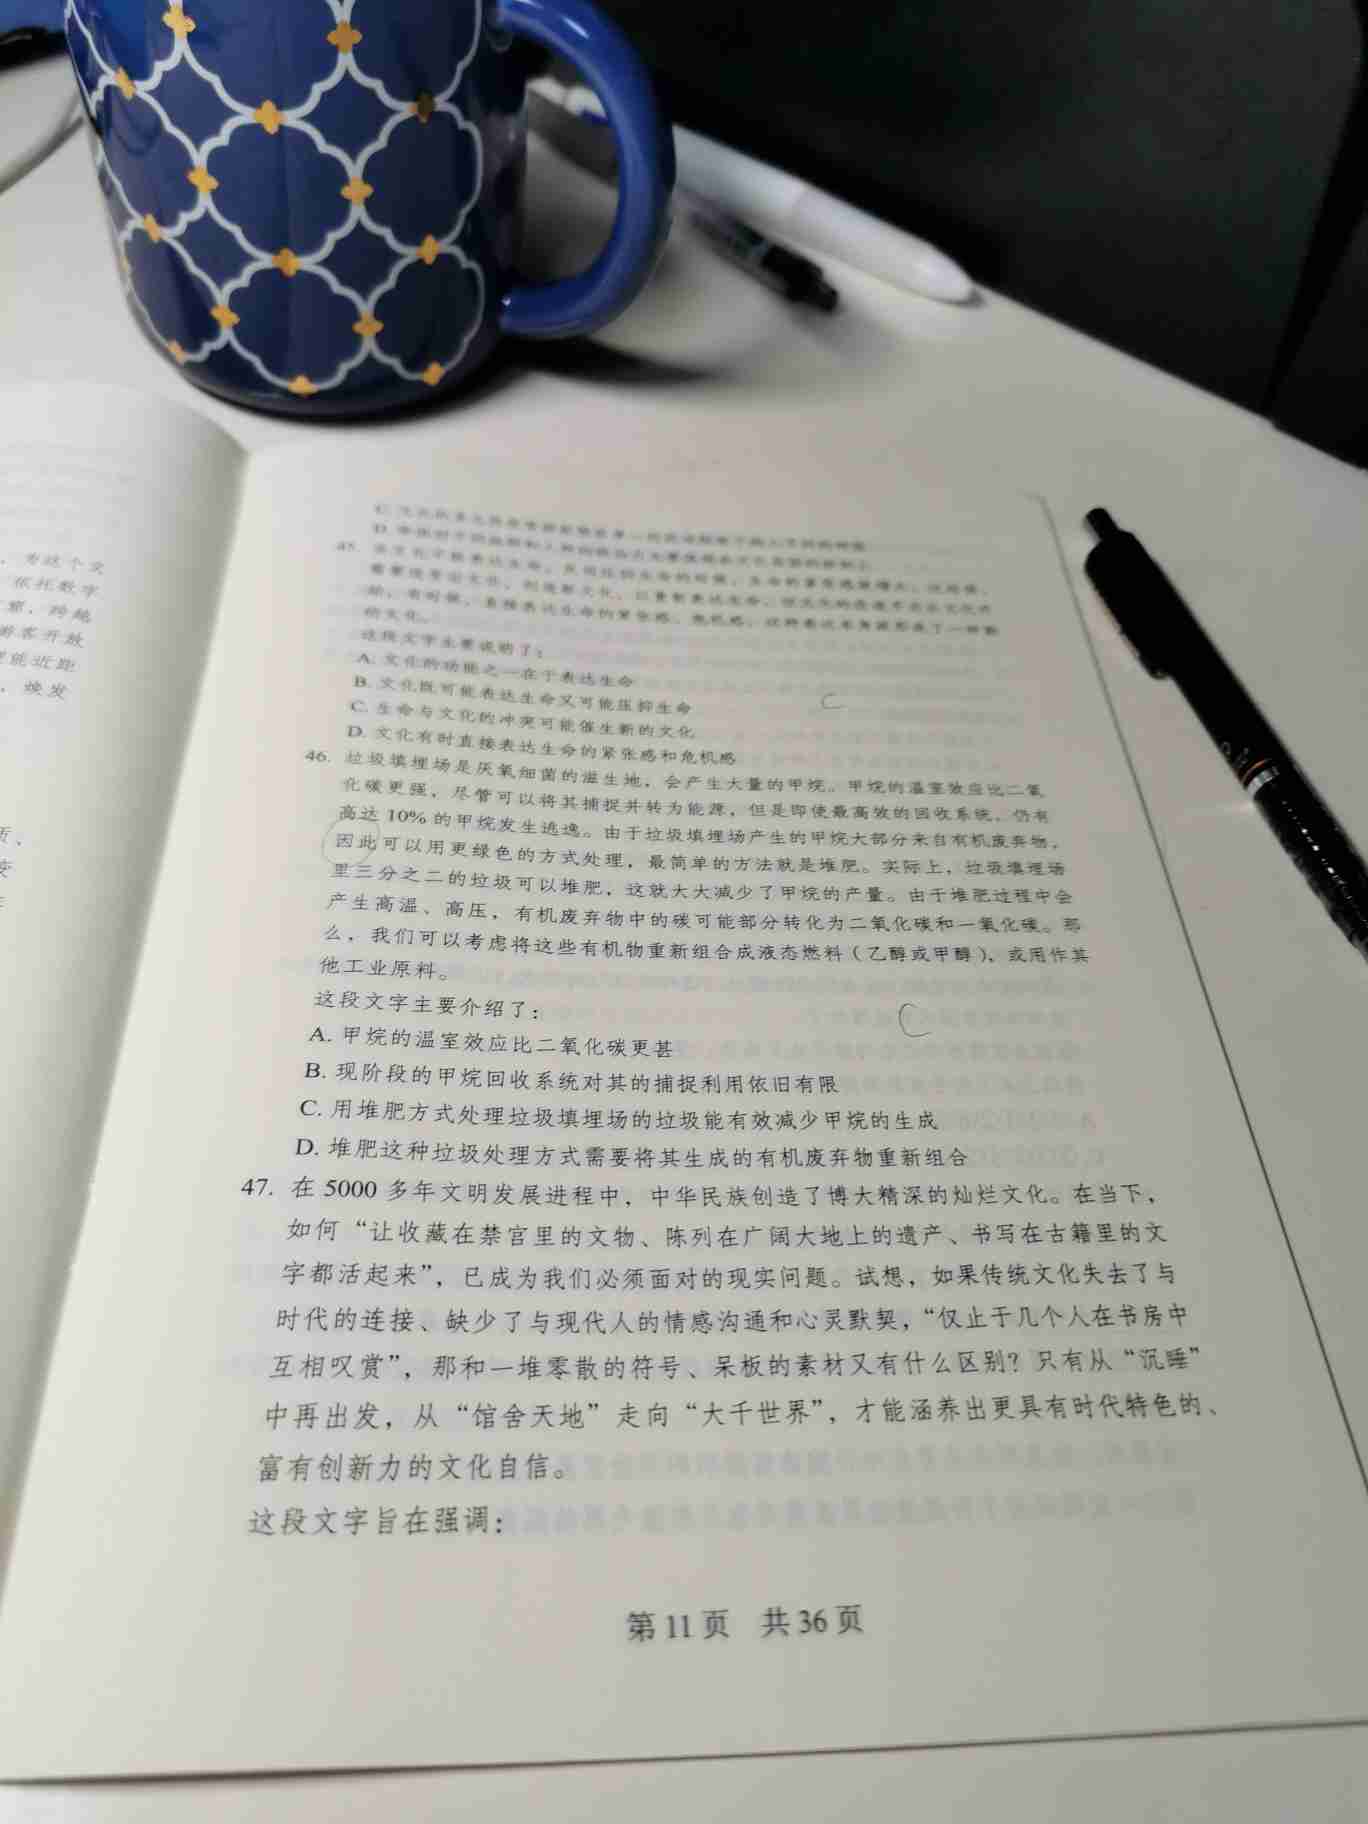 ，为这个文
依托数字
，跨越
游客开放
能近距
，焕发
45.
的文化。
这段文字主要说明了：
A. 文化的功能之一在于表达生命
B. 文化既可能表达生命又可能压抑生命
C. 生命与文化的冲突可能催生新的文化
D. 文化有时直接表达生命的紧张感和危机感
C
46. 垃圾填埋场是厌氧细菌的滋生地，会产生大量的甲烷。甲烷的温室效应比二氧
化碳更强，尽管可以将其捕捉并转为能源，但是即使最高效的回收系统，仍有
高达 10% 的甲烷发生逃逸。由于垃圾填埋场产生的甲烷大部分来自有机废弃物，
因此可以用更绿色的方式处理，最简单的方法就是堆肥。实际上，垃圾填埋场
里三分之二的垃圾可以堆肥，这就大大减少了甲烷的产量。由于堆肥过程中会
产生高温、高压，有机废弃物中的碳可能部分转化为二氧化碳和一氧化碳。那
么，我们可以考虑将这些有机物重新组合成液态燃料（乙醇或甲醇），或用作其
他工业原料。
这段文字主要介绍了：
C
A. 甲烷的温室效应比二氧化碳更甚
B. 现阶段的甲烷回收系统对其的捕捉利用依旧有限
C. 用堆肥方式处理垃圾填埋场的垃圾能有效减少甲烷的生成
D. 堆肥这种垃圾处理方式需要将其生成的有机废弃物重新组合
47. 在 5000 多年文明发展进程中，中华民族创造了博大精深的灿烂文化。在当下，
如何“让收藏在禁宫里的文物、陈列在广阔大地上的遗产、书写在古籍里的文
字都活起来”，已成为我们必须面对的现实问题。试想，如果传统文化失去了与
时代的连接、缺少了与现代人的情感沟通和心灵默契，“仅止于几个人在书房中
互相叹赏”，那和一堆零散的符号、呆板的素材又有什么区别？只有从“沉睡”
中再出发，从“馆舍天地”走向“大千世界”，才能涵养出更具有时代特色的、
富有创新力的文化自信。
这段文字旨在强调：
第 11 页 共 36 页